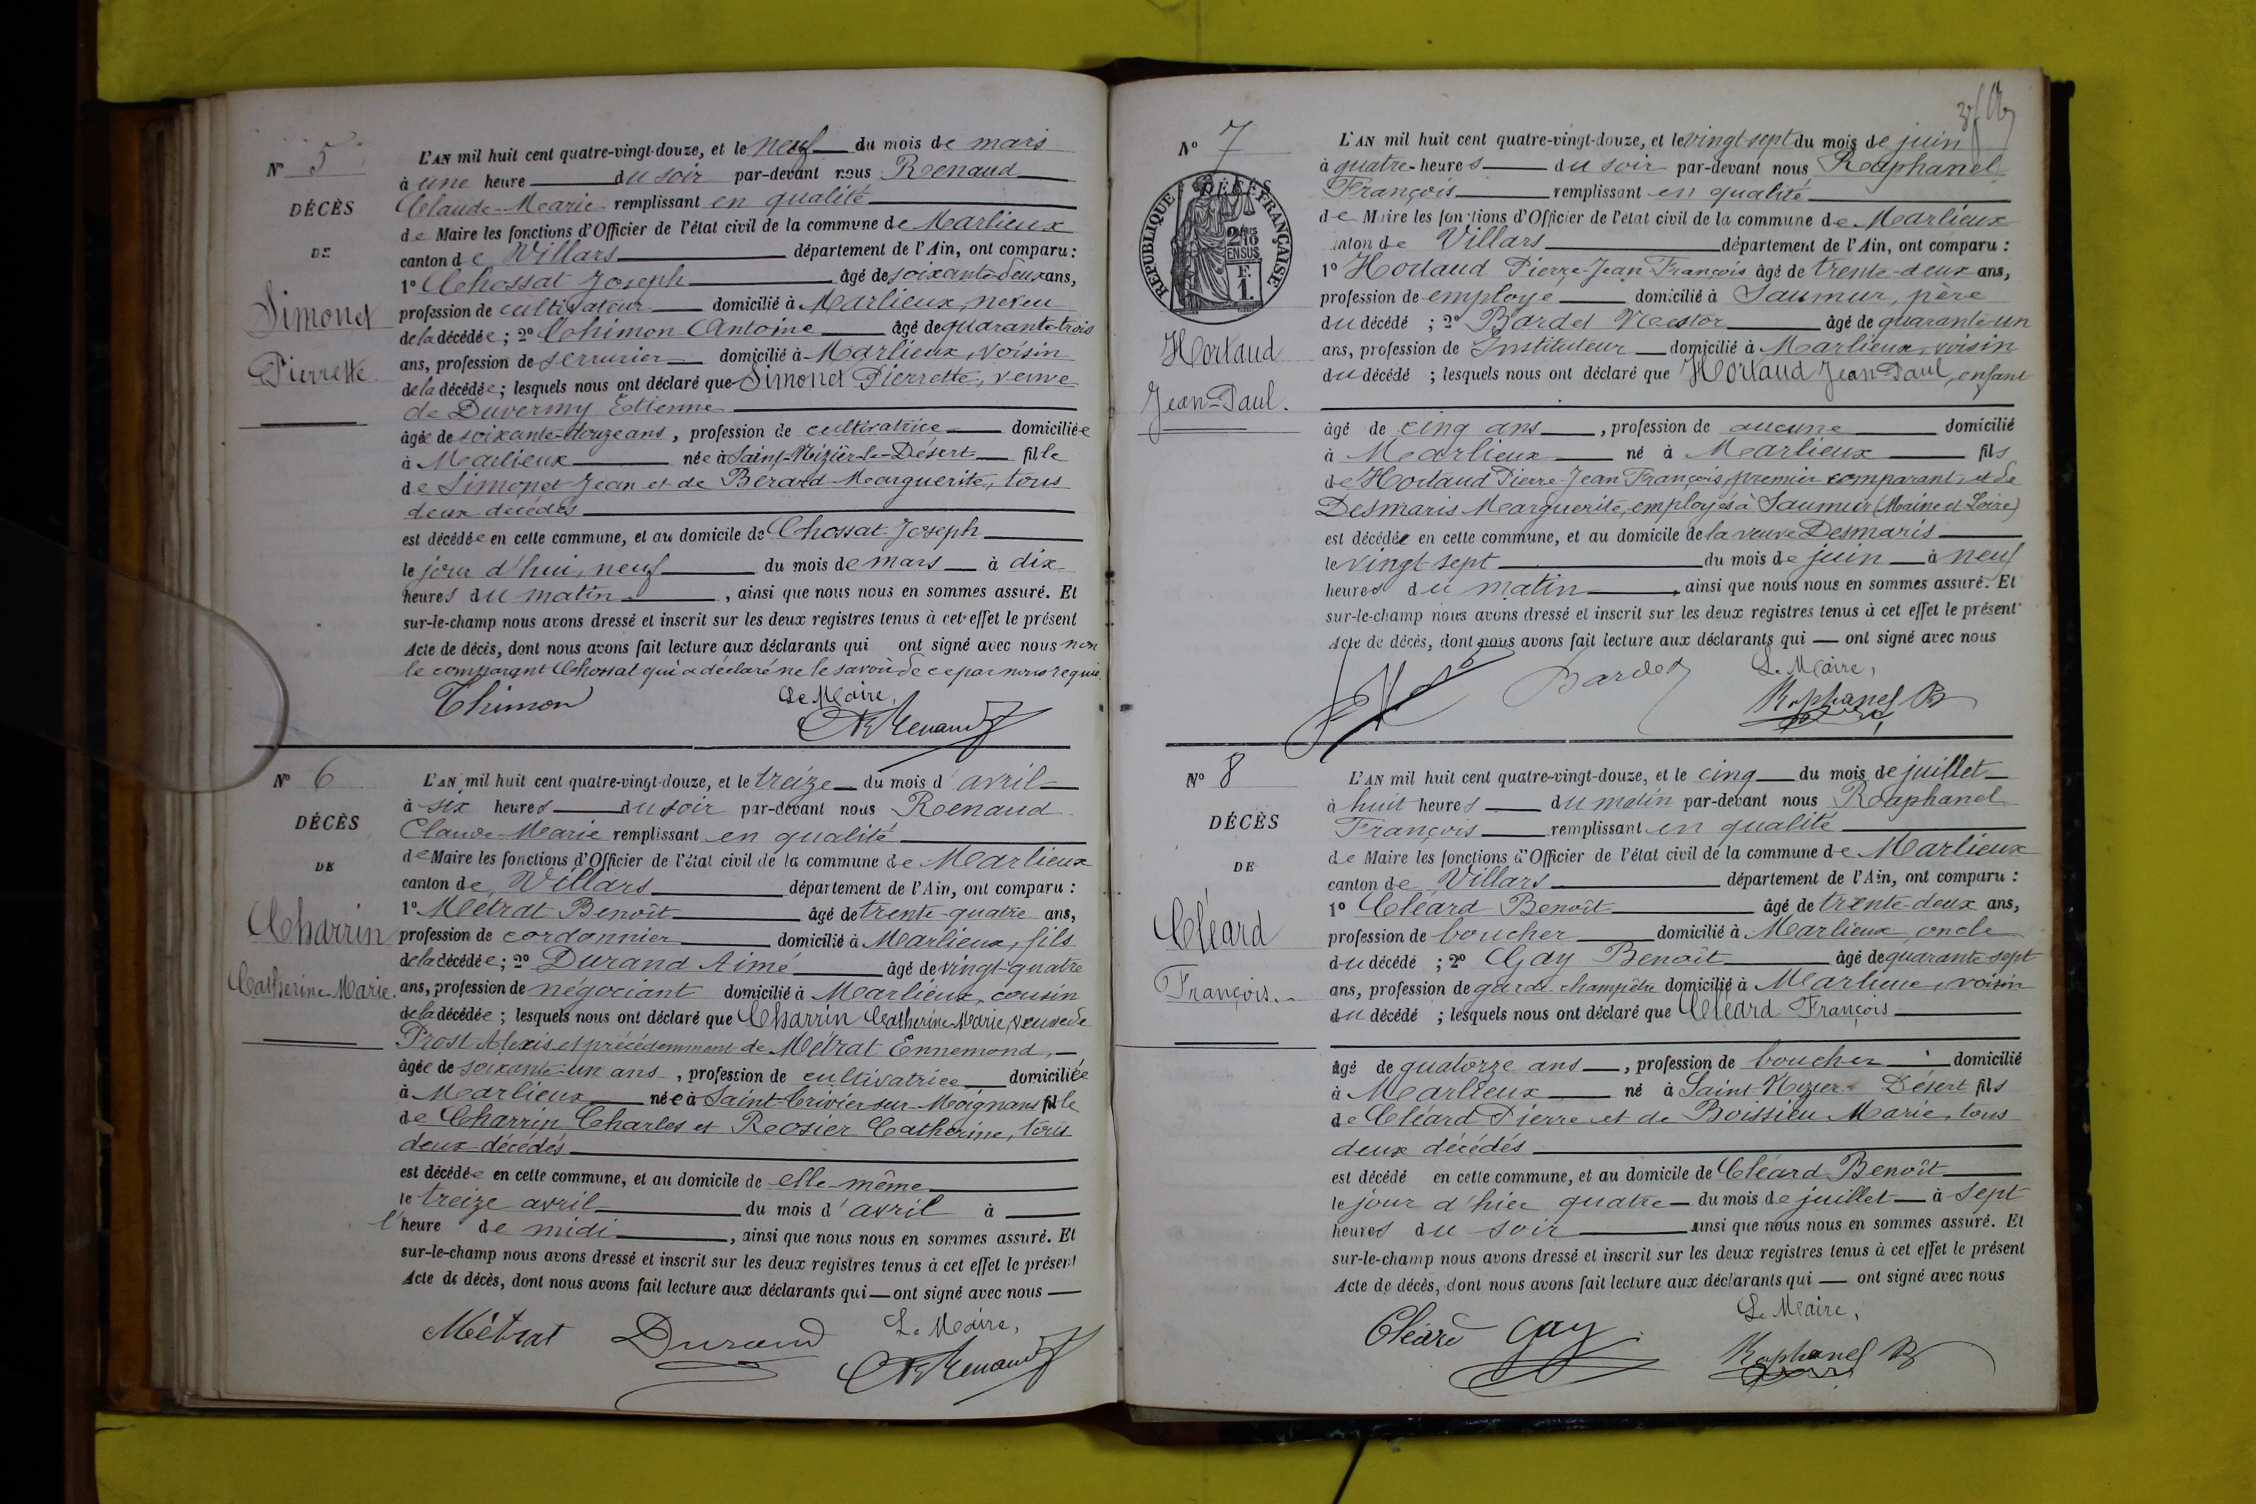 N° 5
DÉCÈS
DE
Simonet
Pierrette
L'AN mil huit cent quatre-vingt-douze, et le neuf du mois de mars
à une heure du soir par-devant nous Renaud
Claude-Marie remplissant en qualité
de Maire les fonctions d'Officier de l'état civil de la commune de Marlieux
canton de Villars département de l'Ain, ont comparu :
1° Chossat Joseph âgé de soixante-deux ans,
profession de cultivateur domicilié à Marlieux, neveu
de la décédée ; 2° Thimon Antoine âgé de quarante-trois
ans, profession de serrurier domicilié à Marlieux, voisin
de la décédée ; lesquels nous ont déclaré que Simonet Pierrette, veuve
de Duvermy Etienne
âgée de soixante-douze ans, profession de cultivatrice domiciliée
à Marlieux née à Saint-Nizier-le-Désert fille
de Simonet Jean et de Berard Marguerite, tous
deux décédés
est décédée en cette commune, et au domicile de Chossat Joseph
le jour d'hui, neuf du mois de mars à dix
heures du matin, ainsi que nous nous en sommes assuré. Et
sur-le-champ nous avons dressé et inscrit sur les deux registres tenus à cet effet le présent
Acte de décès, dont nous avons fait lecture aux déclarants qui ont signé avec nous non
le comparant Chossat qui a déclaré ne le savoir de ce par nous requis.
Thimon
Le Maire,
CM Renaud
N° 6
DÉCÈS
DE
Charrin
Catherine-Marie.
L'AN mil huit cent quatre-vingt-douze, et le treize du mois d'avril
à six heures du soir par-devant nous Renaud
Claude-Marie remplissant en qualité
de Maire les fonctions d'Officier de l'état civil de la commune de Marlieux
canton de Villars département de l'Ain, ont comparu :
1° Métrat Benoît âgé de trente-quatre ans,
profession de cordonnier domicilié à Marlieux, fils
de la décédée ; 2° Durand Aimé âgé de vingt-quatre
ans, profession de négociant domicilié à Marlieux, cousin
de la décédée ; lesquels nous ont déclaré que Charrin Catherine-Marie, veuve de
Prost Alexis et précédemment de Métrat Ennemond,
âgée de soixante-un ans, profession de cultivatrice domiciliée
à Marlieux née à Saint-Trivier-sur-Moignans fille
de Charrin Charles et Rosier Catherine, tous
deux décédés
est décédée en cette commune, et au domicile de elle-même
le treize avril du mois d'avril à
l'heure de midi, ainsi que nous nous en sommes assuré. Et
sur-le-champ nous avons dressé et inscrit sur les deux registres tenus à cet effet le présent
Acte de décès, dont nous avons fait lecture aux déclarants qui ont signé avec nous
Métrat Durand
Le Maire,
CM Renaud
N° 7
DÉCÈS
RÉPUBLIQUE FRANÇAISE
2/10 EN SUS
F. 1.
Hortaud
Jean-Paul.
L'AN mil huit cent quatre-vingt-douze, et le vingt sept du mois de juin
à quatre heures du soir par-devant nous Raphanel
François remplissant en qualité
de Maire les fonctions d'Officier de l'état civil de la commune de Marlieux
canton de Villars département de l'Ain, ont comparu :
1° Hortaud Pierre-Jean-François âgé de trente-deux ans,
profession de employé domicilié à Saumur, père
du décédé ; 2° Bardet Nestor âgé de quarante-un
ans, profession de Instituteur domicilié à Marlieux, voisin
du décédé ; lesquels nous ont déclaré que Hortaud Jean-Paul, enfant
âgé de cinq ans, profession de aucune domicilié
à Marlieux né à Marlieux fils
de Hortaud Pierre-Jean-François, premier comparant, et de
Desmaris Marguerite, employés à Saumur (Maine et Loire)
est décédé en cette commune, et au domicile de la veuve Desmaris
le vingt sept du mois de juin à neuf
heures du matin, ainsi que nous nous en sommes assuré. Et
sur-le-champ nous avons dressé et inscrit sur les deux registres tenus à cet effet le présent
Acte de décès, dont nous avons fait lecture aux déclarants qui ont signé avec nous
Bardet
Le Maire,
Raphanel
N° 8
DÉCÈS
DE
Cléard
François.
L'AN mil huit cent quatre-vingt-douze, et le cinq du mois de juillet
à huit heures du matin par-devant nous Raphanel
François remplissant en qualité
de Maire les fonctions d'Officier de l'état civil de la commune de Marlieux
canton de Villars département de l'Ain, ont comparu :
1° Cléard Benoît âgé de trente-deux ans,
profession de boucher domicilié à Marlieux, oncle
du décédé ; 2° Gay Benoît âgé de quarante-sept
ans, profession de garde champêtre domicilié à Marlieux, voisin
du décédé ; lesquels nous ont déclaré que Cléard François
âgé de quatorze ans, profession de boucher domicilié
à Marlieux né à Saint-Nizier-le-Désert fils
de Cléard Pierre et de Boissieu Marie, tous
deux décédés
est décédé en cette commune, et au domicile de Cléard Benoît
le jour d'hier quatre du mois de juillet à sept
heures du soir ainsi que nous nous en sommes assuré. Et
sur-le-champ nous avons dressé et inscrit sur les deux registres tenus à cet effet le présent
Acte de décès, dont nous avons fait lecture aux déclarants qui ont signé avec nous
Cléard Gay
Le Maire,
Raphanel